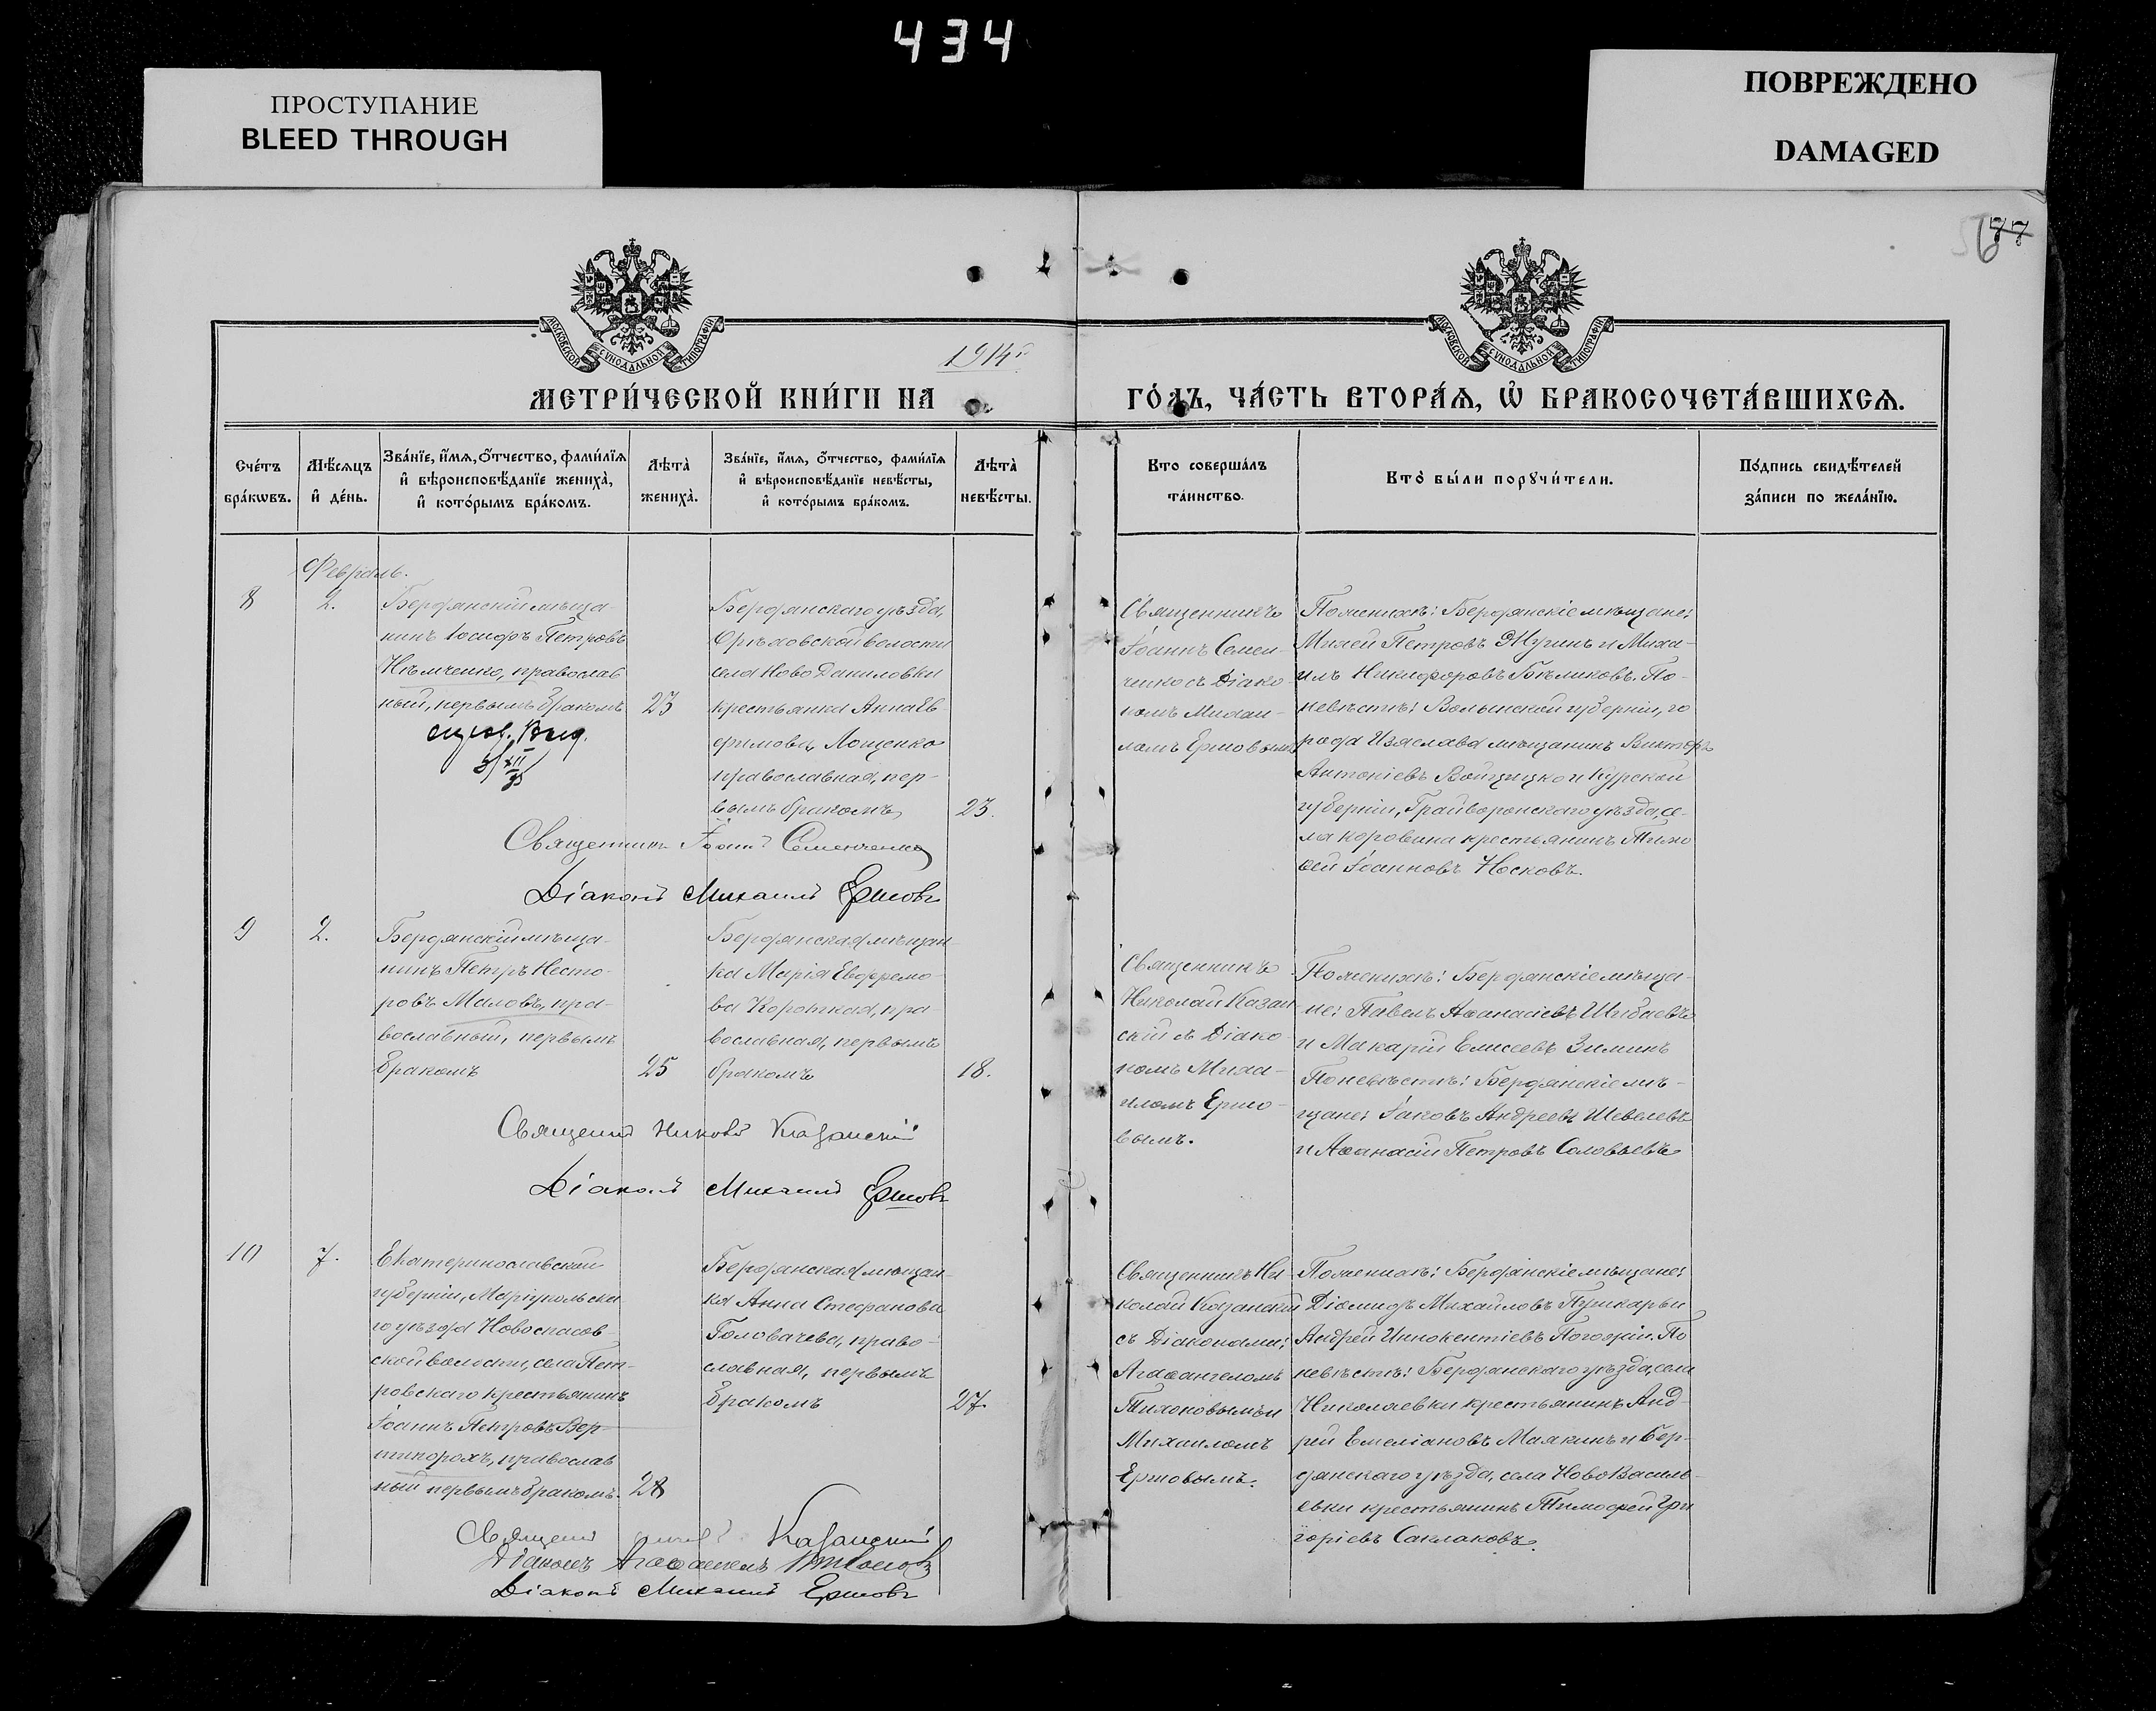 434
ПРОСТУПАНИЕ
BLEED THROUGH
ПОВРЕЖДЕНО
DAMAGED
77
МОСКОВСКОЙ СѴНОДАЛЬНОЙ ТИПОГРАФІИ
МОСКОВСКОЙ СѴНОДАЛЬНОЙ ТИПОГРАФІИ
1914 г.
МЕТРИ́ЧЕСКОЙ КНИ́ГИ НА
ГО́ДЪ, ЧА́СТЬ ВТОРА́Ѧ, Ѡ҆ БРАКОСОЧЕТА́ВШИХСѦ.
Сче́тъ
бра́кѡвъ.
Мѣ́сѧцъ
и҆ де́нь.
Зва́нїе, и҆́мѧ, ѻ҆́тчество, фами́лїѧ
и҆ вѣроисповѣ́данїе жениха̀,
и҆ кото́рымъ бра́комъ.
Лѣта̀
жениха̀.
Зва́нїе, и҆́мѧ, ѻ҆́тчество, фами́лїѧ
и҆ вѣроисповѣ́данїе невѣ́сты,
и҆ кото́рымъ бра́комъ.
Лѣта̀
невѣ́сты.
Кто соверша́лъ
та́инство.
Кто̀ бы́ли порꙋчи́тели.
По́дпись свидѣ́телей
за́писи по жела́нїю.
Февраль.
8
2.
Бердянскій мѣща-
нинъ Іосифъ Петровъ
Нѣмченко, православ
ный, первымъ бракомъ
23
Бердянскаго уѣзда,
Орѣховской волости
села Ново Даниловки
крестьянка Анна Ев
фимова Лощенко
православная, пер-
вымъ бракомъ
23.
Священникъ
Іоаннъ Семен-
ченко съ Діако-
номъ Михаи-
ломъ Ершовымъ
По женихѣ: Бердянскіе мѣщане:
Михей Петровъ Жугинъ и Миха-
илъ Никифоровъ Бѣликовъ. По
невѣстѣ: Волынской губерніи, го
рода Изяслава мѣщанинъ Викторъ
Антоніевъ Войцицко и Курской
губерніи, Грайворонскаго уѣзда, се-
ла Коровина крестьянинъ Тимо
ѳей Іоанновъ Носковъ.
Священникъ Іоаннъ Семенченко
Діаконъ Михаилъ Ершовъ
9
2.
Бердянскій мѣща-
нинъ Петръ Несто-
ровъ Маловъ, пра-
вославный, первымъ
бракомъ
25
Бердянская мѣщан-
ка Марія Евфремо-
ва Короткая, пра-
вославная, первымъ
бракомъ
18.
Священникъ
Николай Казан
скій съ Діако
номъ Миха-
иломъ Ершо-
вымъ.
По женихѣ: Бердянскіе мѣща-
не: Павелъ Аѳанасіевъ Шибаевъ
и Макарій Елисеевъ Зиминъ
По невѣстѣ: Бердянскіе мѣ-
щане: Іаковъ Андреевъ Шевелевъ
и Аѳанасій Петровъ Соловьевъ
Священникъ Николай Казанскій
Діаконъ Михаилъ Ершовъ
10
7.
Екатеринославской
губерніи, Маріупольска
го уѣзда Новоспасов-
ской волости, села Пет-
ровскаго крестьянинъ
Іоаннъ Петровъ Вер-
типорохъ, православ
ный первымъ бракомъ.
28
Бердянская мѣщан-
ка Анна Стефанова
Головачева, право-
славная, первымъ
бракомъ
27.
Священникъ Ни
колай Казанскій
съ Діаконами:
Агаѳангеломъ
Тихоновымъ и
Михаиломъ
Ершовымъ.
По женихѣ: Бердянскіе мѣщане:
Діомидъ Михайловъ Пушкарь и
Андрей Иннокентіевъ Погожій. По
невѣстѣ: Бердянскаго уѣзда, села
Николаевки крестьянинъ Анд-
рей Емеліановъ Маякинъ и Бер-
дянскаго уѣзда, села Ново Василь-
евки крестьянинъ Тимофей Гри
горіевъ Саклаковъ.
Священникъ Казанскій
Діаконъ Агаѳангелъ Тихоновъ
Діаконъ Михаилъ Ершовъ